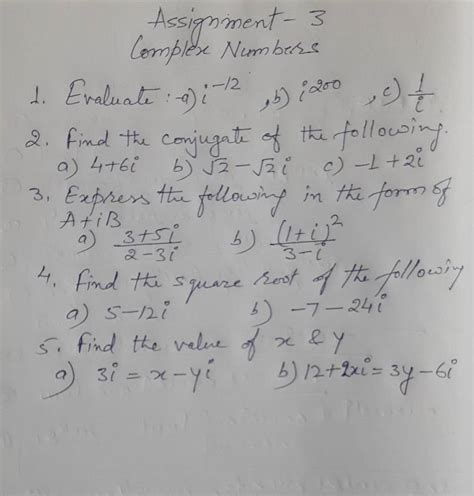 Assignment - 3
Complex Numbers
1. Evaluate :- a) i⁻¹², b) i²⁰⁰, c) 1/i
2. Find the conjugate of the following.
a) 4+6i b) √2 - √2 i c) -1 + 2i
3. Express the following in the form of
A+iB
a) (3+5i)/(2-3i) b) (1+i)²/(3-i)
4. Find the square root of the followiy
a) 5-12i b) -7-24i
5. Find the value of x & y
a) 3i = x - yi b) 12+2xi = 3y-6i